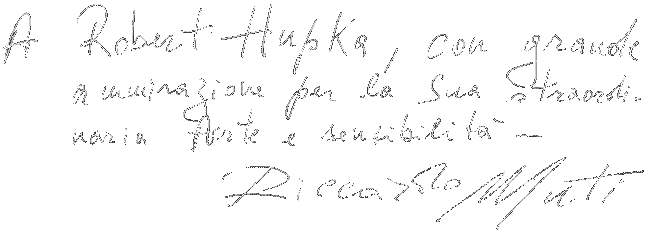 A Robert Hupka, con grande
ammirazione per la Sua straordi-
naria Arte e sensibilità -
Riccardo Muti